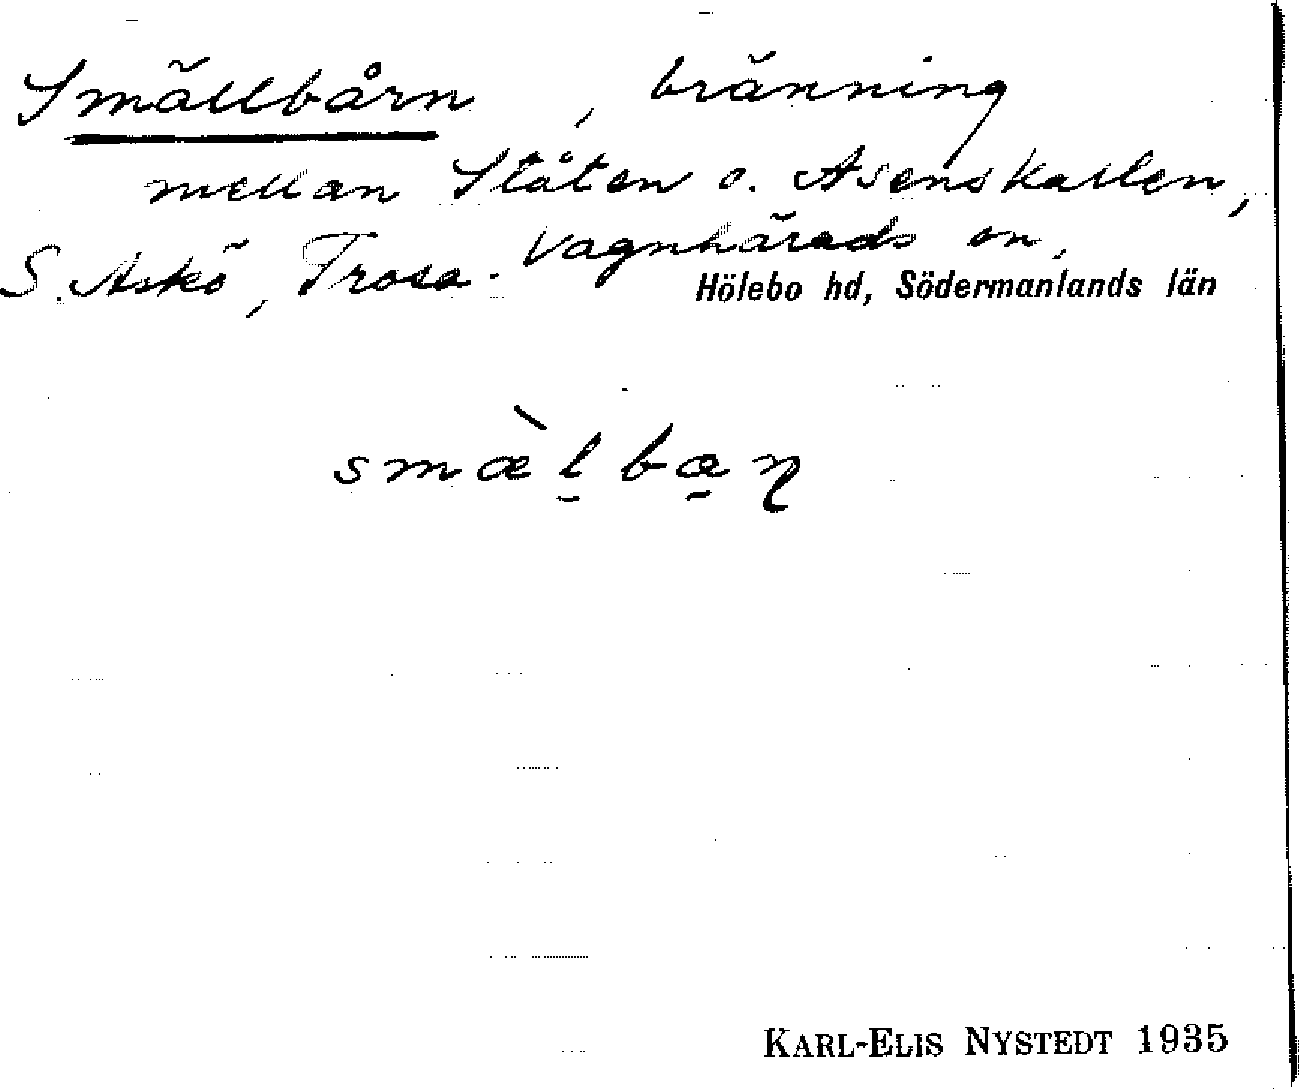 Smällbårn, bränning
mellan Slåten o. Asenskallen,
S. Askö, Trosa-Vagnhärads sn,
Hölebo hd, Södermanlands län
smæ̀l̠ba̠ɳ
KARL-ELIS NYSTEDT 1935